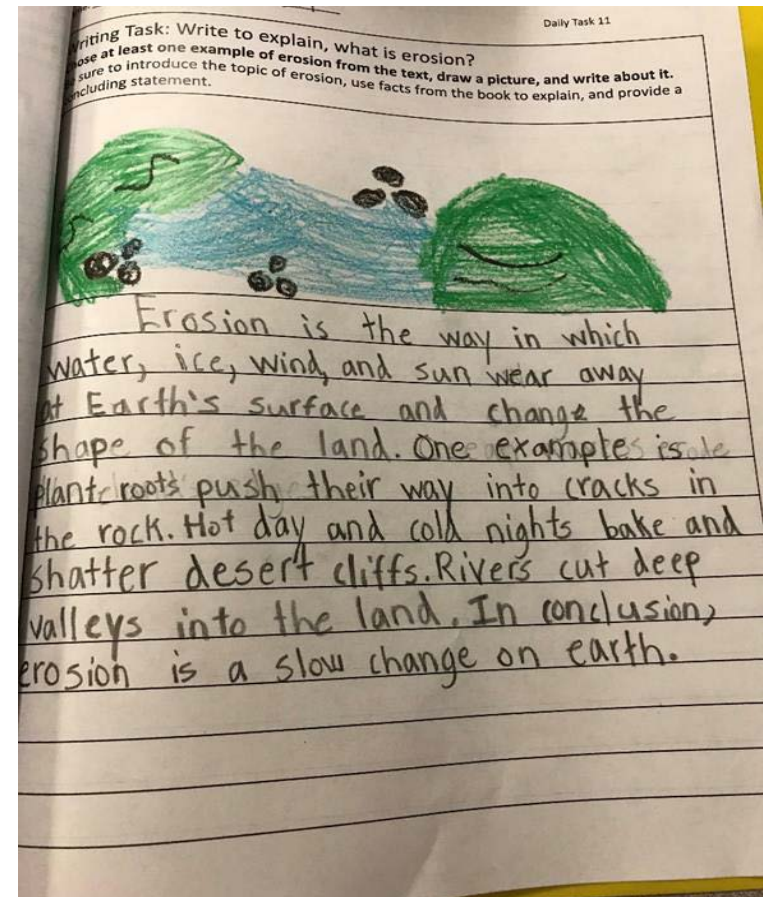 Daily Task 11
riting Task: Write to explain, what is erosion?
ose at least one example of erosion from the text, draw a picture, and write about it.
sure to introduce the topic of erosion, use facts from the book to explain, and provide a
ncluding statement.
Erosion is the way in which
water, ice, wind, and sun wear away
at Earth's surface and change the
shape of the land. One example is
plant roots push their way into cracks in
the rock. Hot day and cold nights bake and
shatter desert cliffs. Rivers cut deep
valleys into the land. In conclusion,
erosion is a slow change on earth.